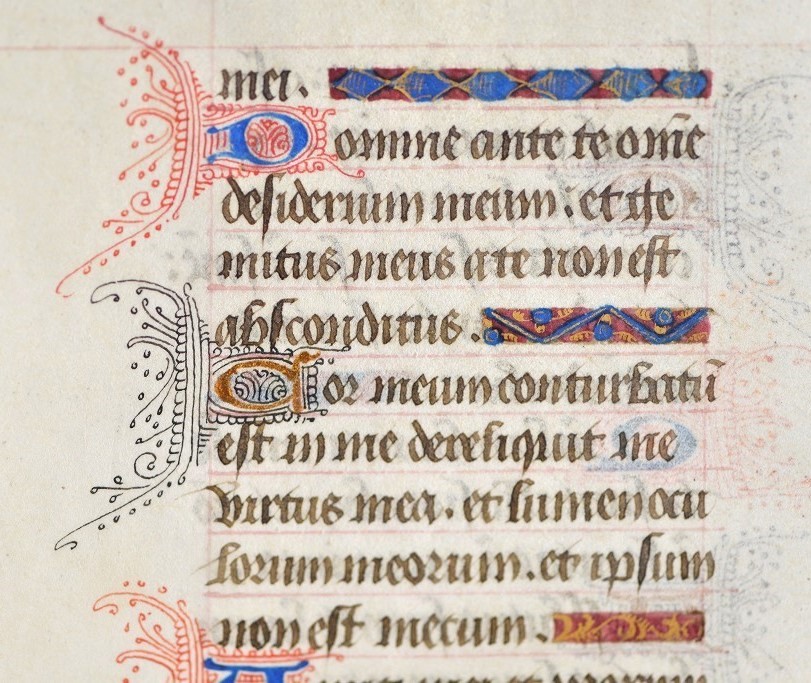 mei.
Domine ante te om̄e
desiderium meum. et ge
mitus meus a te non est
absconditus.
Cor meum conturbatū
est in me dereliquit me
virtus mea. et lumen ocu
lorum meorum. et ipsum
non est mecum.